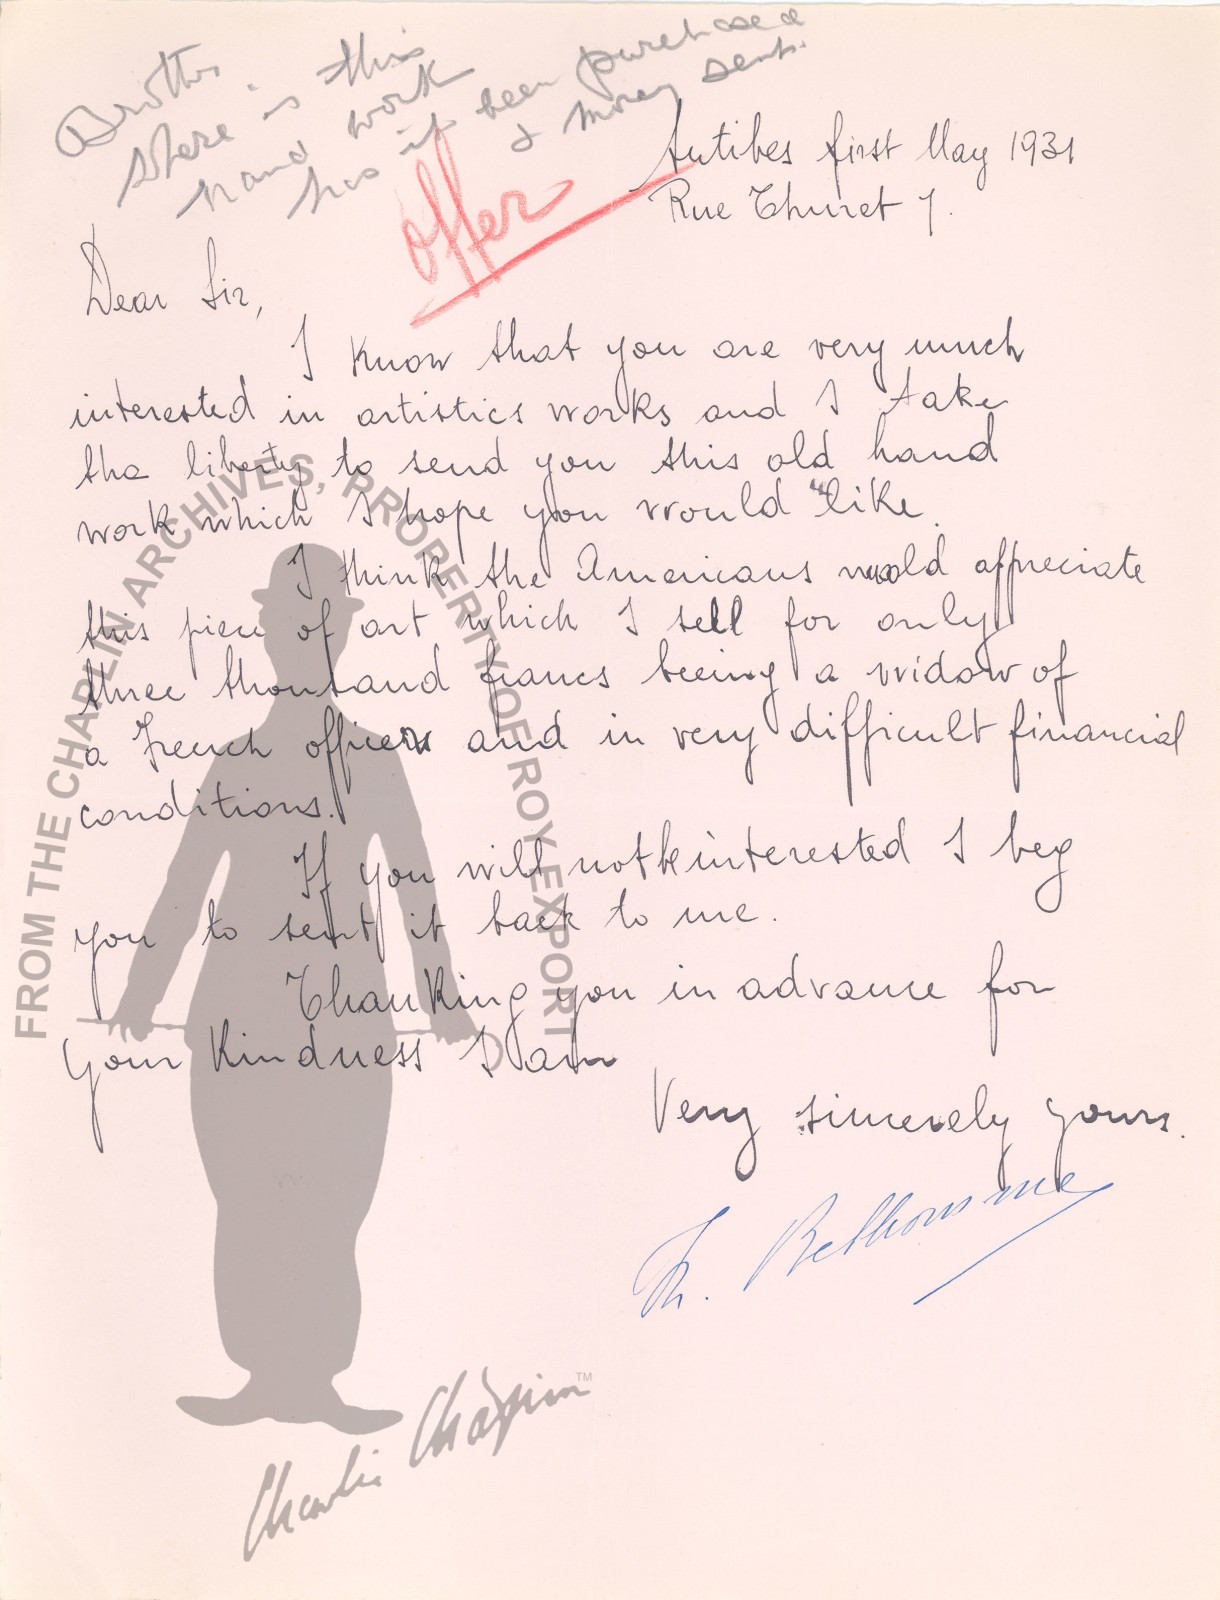 Brother
where is this
hand work
has it been purchased
& money sent.
offer
Antibes first May 1931
Rue Thuret 7.
Dear Sir,
I know that you are very much
interested in artistics works and I take
the liberty to send you this old hand
work which I hope you would like.
I think the Americans would appreciate
this piece of art which I sell for only
three thousand francs beeing a widow of
a French officer and in very difficult financial
conditions.
If you will not be interested I beg
you to sent it back to me.
Thanking you in advance for
your kindness I am
Very sincerely yours.
FROM THE CHAPLIN ARCHIVES, PROPERTY OF ROY EXPORT
Charlie Chaplin™